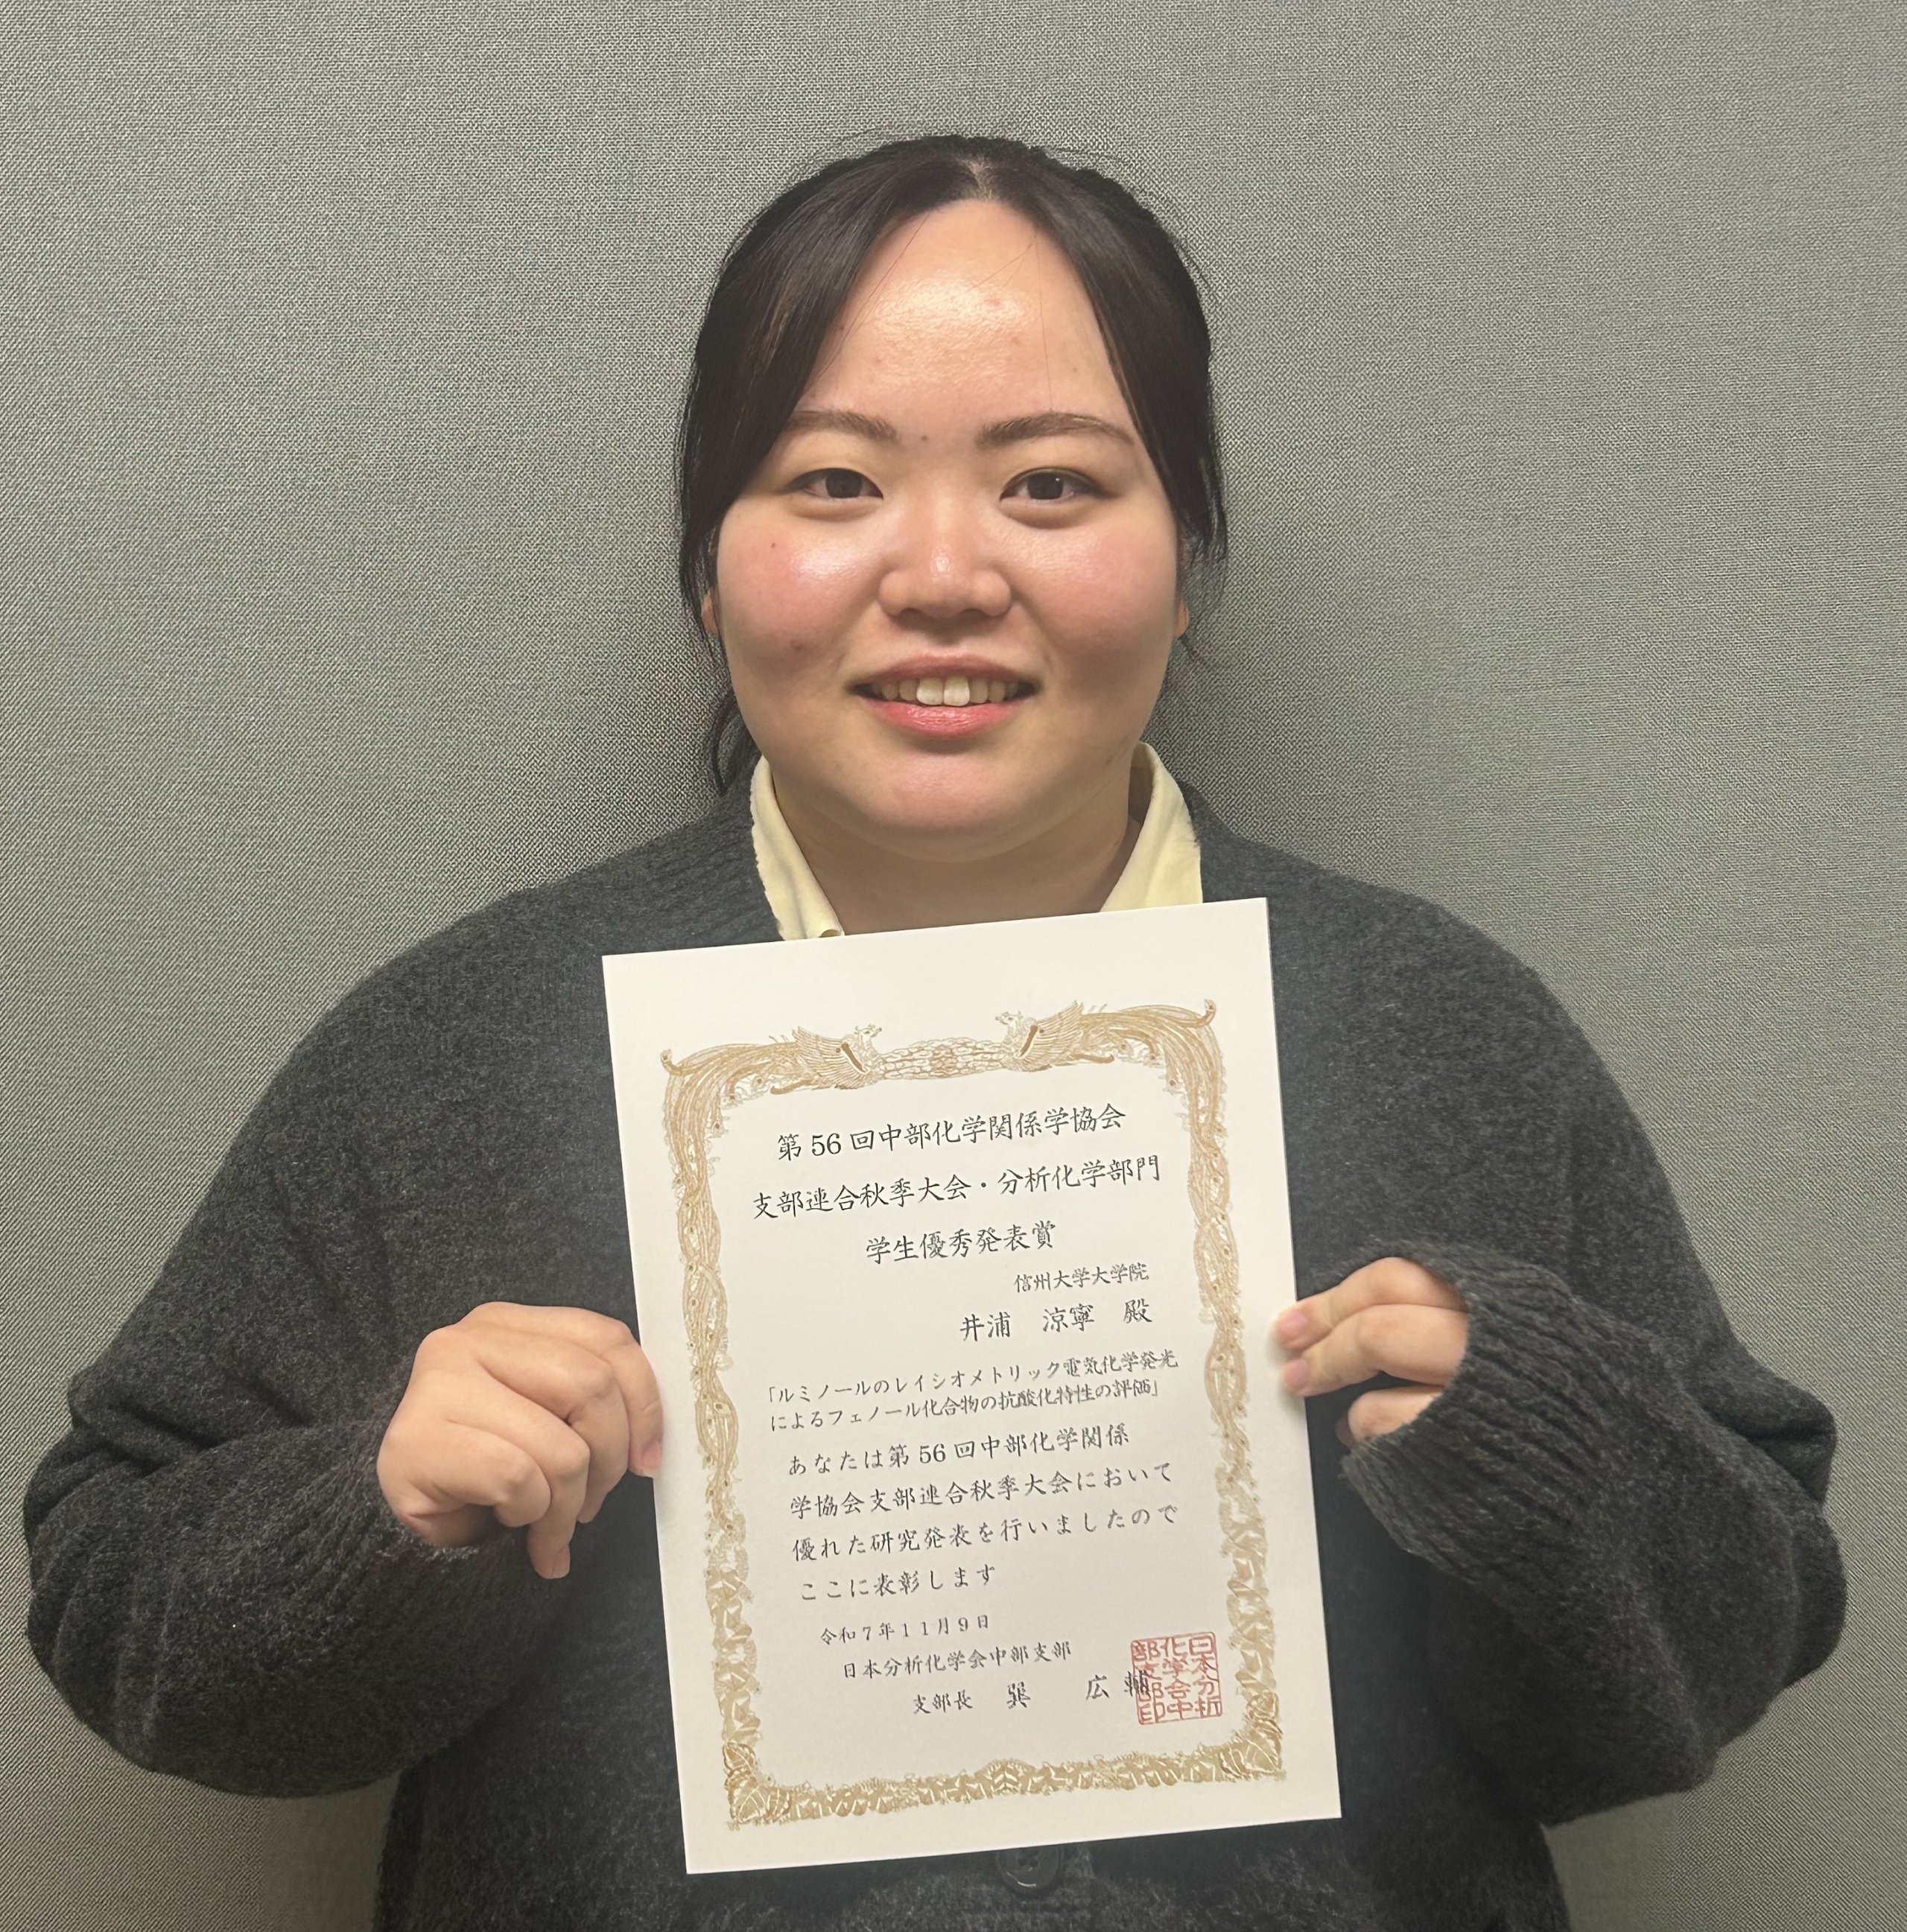 第56回中部化学関係学協会
支部連合秋季大会・分析化学部門
学生優秀発表賞
信州大学大学院
井浦 涼寧 殿
「ルミノールのレイシオメトリック電気化学発光
によるフェノール化合物の抗酸化特性の評価」
あなたは第56回中部化学関係
学協会支部連合秋季大会において
優れた研究発表を行いましたので
ここに表彰します
令和7年11月9日
日本分析化学会中部支部
支部長 巽 広輔
日本分析
化学会中
部支部印